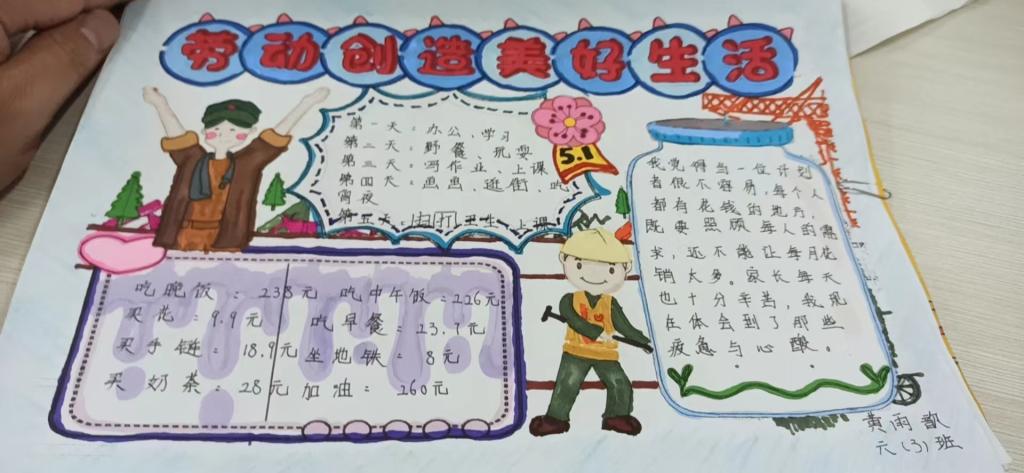 劳动创造美好生活
第一天：办公、学习
第二天：野餐、玩耍
第三天：写作业、上课
第四天：画画、逛街、吃
宵夜
第五天：扫打卫生、上课
5.1
我觉得当一位计划
者很不容易，每个人
都有花钱的地方，
既要照顾每人的需
求，还不能让每月花
销太多。家长每天
也十分辛苦，我现
在体会到了那些
疲惫与心酸。
吃晚饭：238元 吃中午饭：226元
买花：9.9元 吃早餐：23.7元
买手链：18.9元 坐地铁：8元
买奶茶：28元 加油：260元
黄雨歆
六(3)班